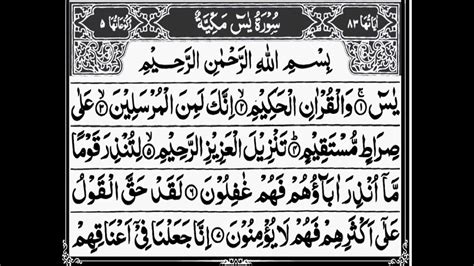 اٰیَاتُهَا ٨٣ سُوْرَةُ يٰسٓ مَكِّيَّةٌ رُكُوْعَاتُهَا ٥
بِسْمِ اللّٰهِ الرَّحْمٰنِ الرَّحِيْمِ
يٰسٓ ۝١ وَالْقُرْاٰنِ الْحَكِيْمِ ۝٢ اِنَّكَ لَمِنَ الْمُرْسَلِيْنَ ۝٣ عَلٰى
صِرَاطٍ مُّسْتَقِيْمٍ ۝٤ تَنْزِيْلَ الْعَزِيْزِ الرَّحِيْمِ ۝٥ لِتُنْذِرَ قَوْمًا
مَّاۤ اُنْذِرَ اٰبَآؤُهُمْ فَهُمْ غٰفِلُوْنَ ۝٦ لَقَدْ حَقَّ الْقَوْلُ
عَلٰۤى اَكْثَرِهِمْ فَهُمْ لَا يُؤْمِنُوْنَ ۝٧ اِنَّا جَعَلْنَا فِيْۤ اَعْنَاقِهِمْ